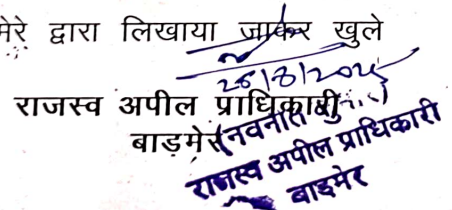 मेरे द्वारा लिखाया जाकर खुले
राजस्व अपील प्राधिकारी
बाड़मेर
(नवनीत
राजस्व अपील प्राधिकारी
बाड़मेर